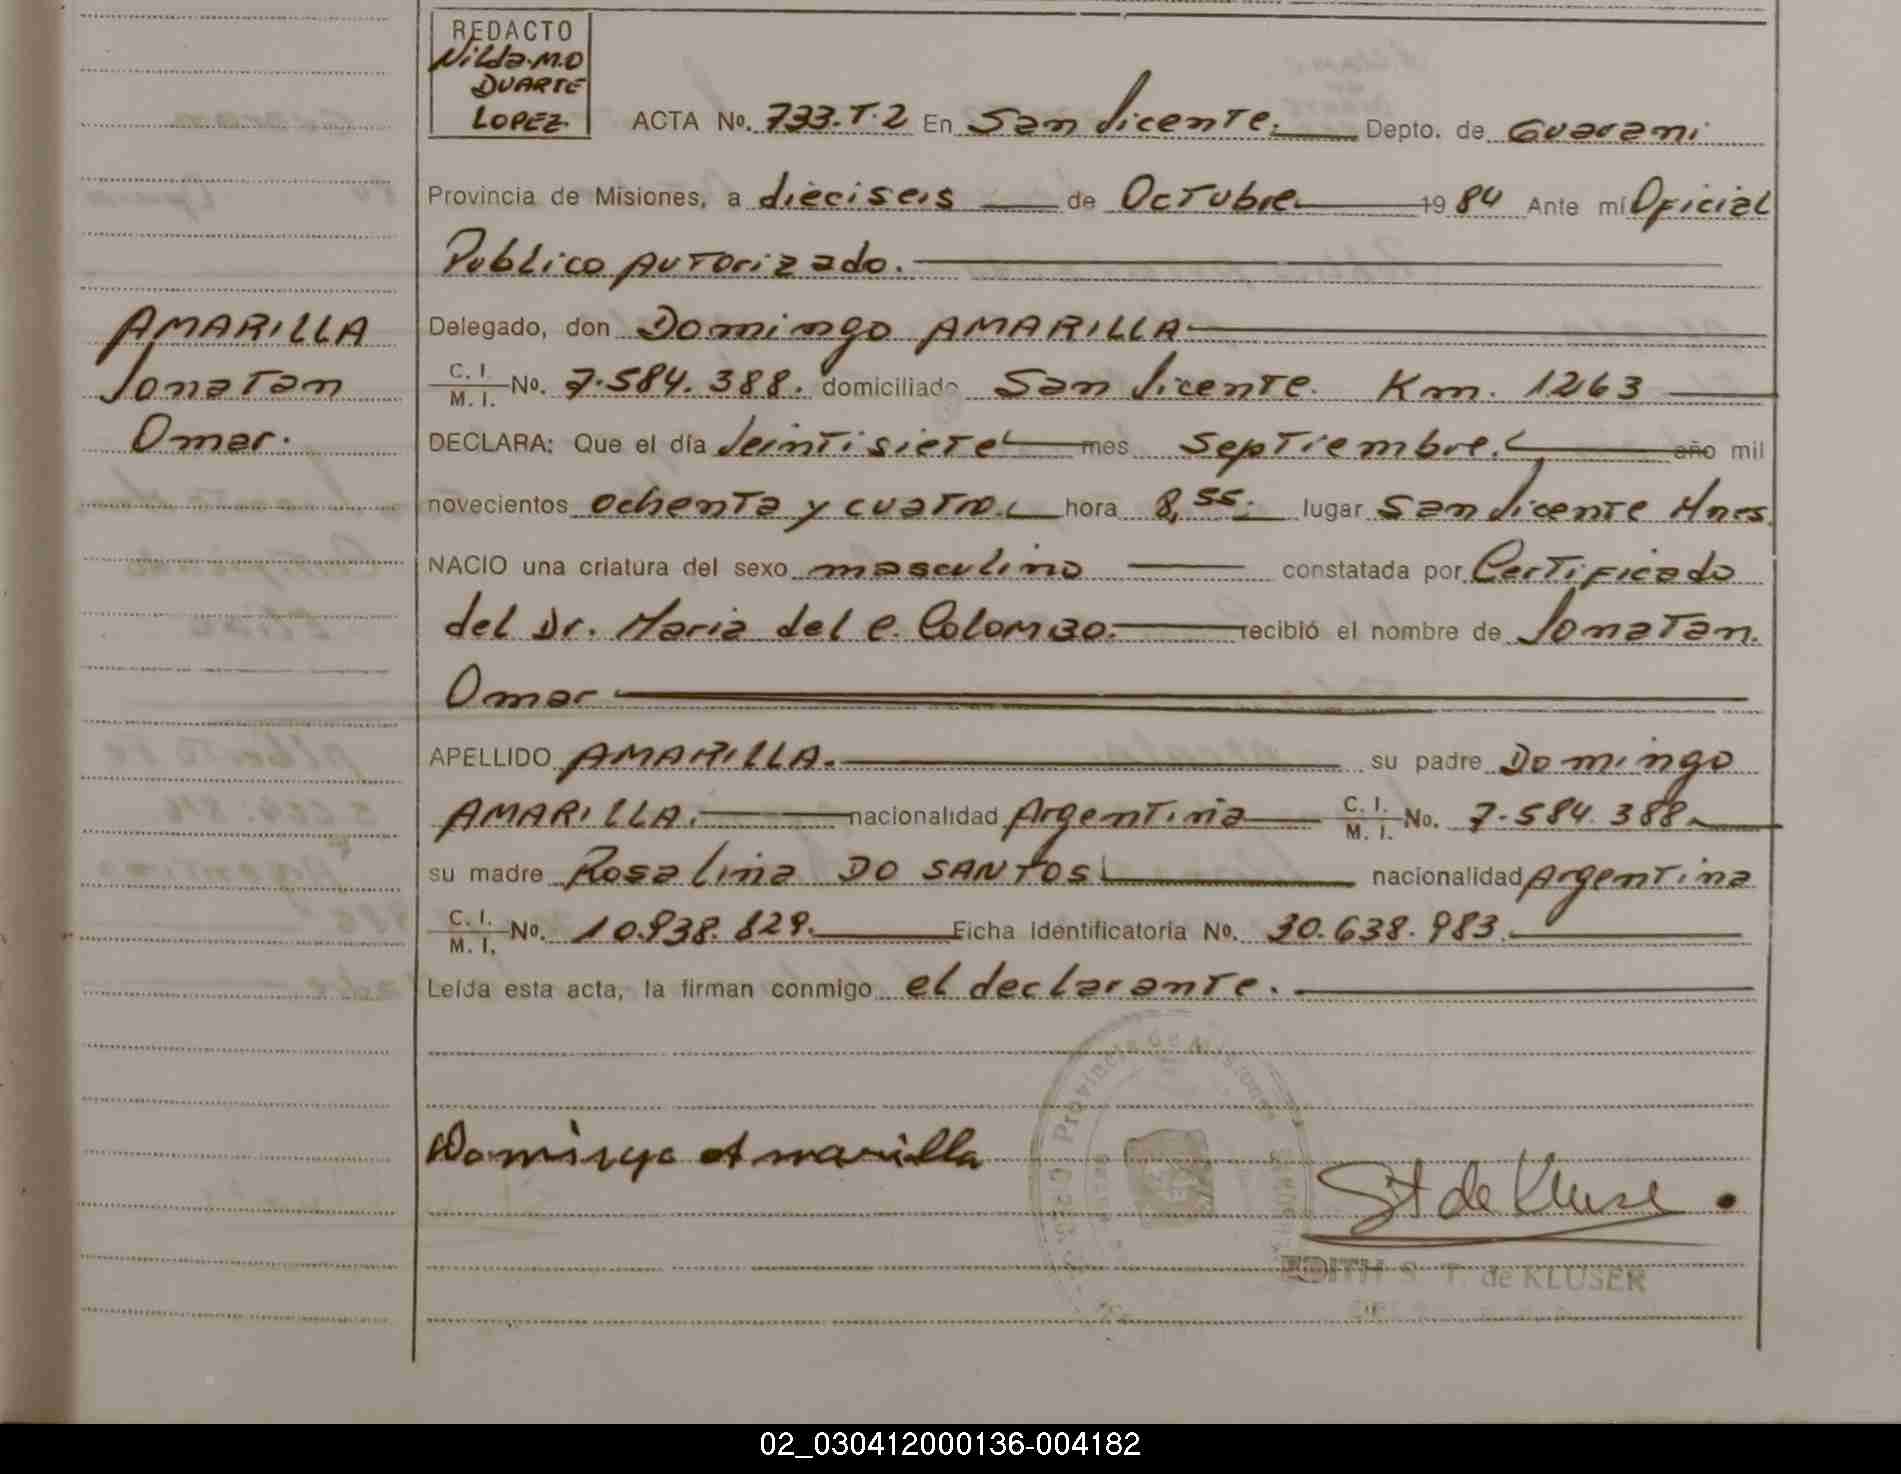 REDACTO
Nilda.M.D
DUARTE
LOPEZ.
ACTA No. 733.T.2 En San Vicente. Depto. de Guarani
Provincia de Misiones, a dieciseis de Octubre 1984 Ante mí Oficial
Publico Autorizado.
AMARILLA
Jonatan
Omar.
Delegado, don Domingo AMARILLA
C. I. / M. I. No. 7.584.388. domiciliado San Vicente. Km. 1263
DECLARA: Que el día Veintisiete mes Septiembre. año mil
novecientos ochenta y cuatro. hora 8,55. lugar San Vicente Mnes.
NACIO una criatura del sexo masculino constatada por Certificado
del Dr. Maria del C. Colombo. recibió el nombre de Jonatan.
Omar
APELLIDO AMARILLA. su padre Domingo
AMARILLA. nacionalidad Argentina C. I. / M. I. No. 7.584.388
su madre Rosalina DO SANTOS nacionalidad Argentina
C. I. / M. I. No. 10.938.829. Ficha Identificatoria No. 30.638.983.
Leída esta acta, la firman conmigo el declarante.
Provincia de Misiones
Domingo Amarilla
St de Kluser
EDITH S. T. de KLUSER
02_030412000136-004182